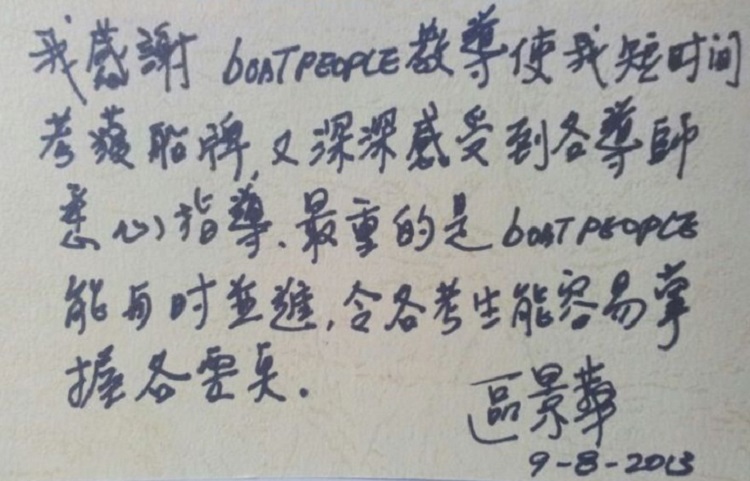 我感謝 boATPEOPLE教導使我短时间
考獲船牌,又深深感受到各導師
悉心指導.最重的是boATPEOPLE
能与时並進,令各考生能容易掌
握各要点.
區景華
9-8-2013